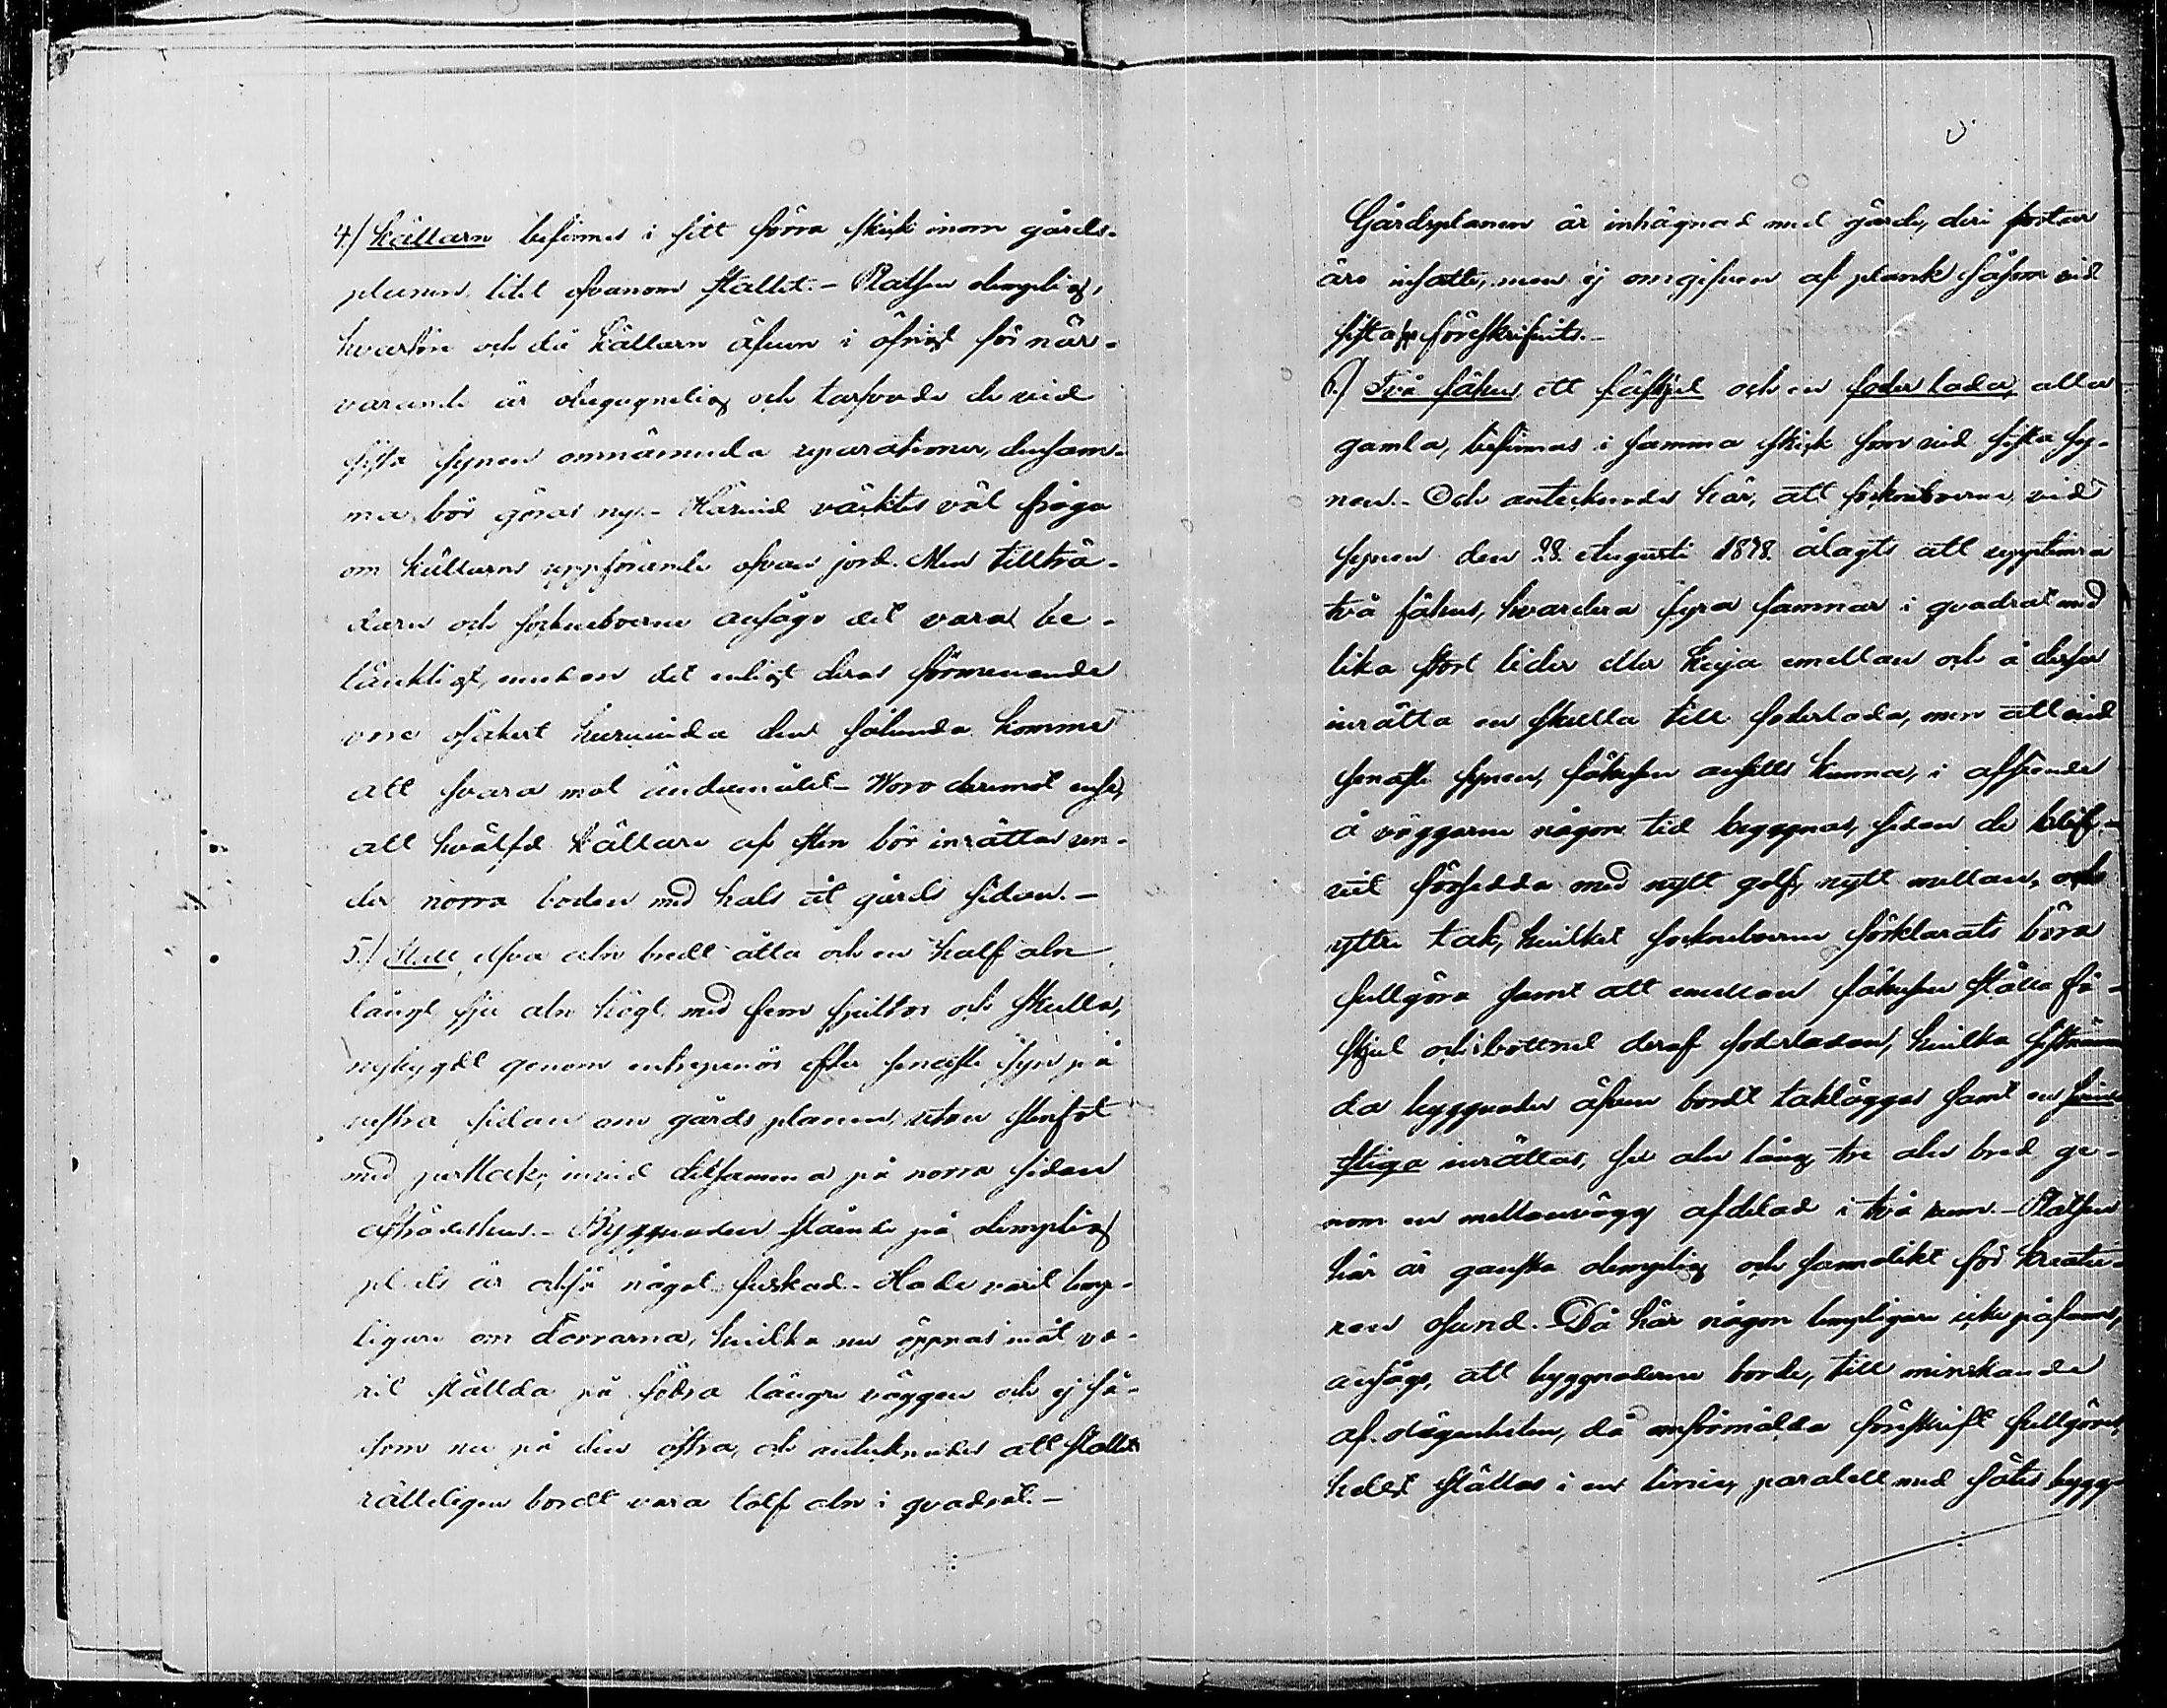 4.) Källarn befinnes i sitt förra skick inom gårds-
planen litet ofvanom stallet. - Platsen olemplig,
hvarföre och då källarn äfven i öfrigt för när-
varande är obegagnelig och tarfvade de vid
sista synen omnämnda reparationer, densam-
ma bör göras ny. - Härvid väcktes väl fråga
om källarns uppförande ofvan jord. Men tillträ-
daren och sockneboerne ansågo det vara be-
tänkligt, emedan det enligt deras förmenande
vore osäkert huruvida den sålunda komme
att svara mot ändamålet - Woro deremot ense,
att hvälfd källare af sten bör inrättas un-
der norra boden med hals åt gårds sidan. -
5.) Stall, elfva aln bredt åtta och en half aln
långt sju aln högt med fem spiltor och skulla,
nybygdt genom entreprenör efter senaste syn på
vestra sidan om gårdsplanen, utan stenfot
med perttak, invid detsamma på norra sidan
afträdeshus. - Byggnaden stående på olemplig
plats är ock så något fuskad. - Hade varit lemp-
ligare om dörrarna, hvilka nu öppnas inåt, va-
rit ställda på södra längre väggen och ej så-
som nu på den östra, och antecknades att stallet
rätteligen bordt vara tolf aln i quadrat. -
Gårdsplanen är inhägnad med gärde, deri portar
äro insatte, men ej omgifven af plank såsom vid
sista föreskrifvits. -
6.) Två fähus ett fäskjul och en foder lada, alla
gamla, befinnas i samma skick som vid sista sy-
nen. - Och antecknades här, att sockneboerne vid
synen den 28 Augusti 1878 ålagts att upptimra
två fähus, hvardera fyra famnar i quadrat med
lika stort lider eller keja emellan och å dessa
inrätta en skulla till foderlada, men att vid
senaste synen, fähusen ansetts kunna, i afseende
å väggarne någon tid begagnas, sedan de blif-
vit försedda med nytt golf, nytt mellan, och
yttre tak, hvilket sockneboerne förklarats böra
fullgöra samt att emellan fähusen ställa fä-
skjul och bottnet deraf foderladan, hvilka sistnämn
da byggnader äfven bordt takläggas samt en svin-
stiga inrättas, sex aln lång, tre aln bred ge-
nom en mellanvägg afdelad i två rum. - Platsen
här är ganska olemplig och sannolikt för kreatu-
ren osund. - Då här någon lempligare icke påfanns,
ansågs, att byggnaderne borde, till minskande
af olägenheten, då omförmälda föreskrift fullgöres,
helst ställas i en linie, paralell med fähus bygg-